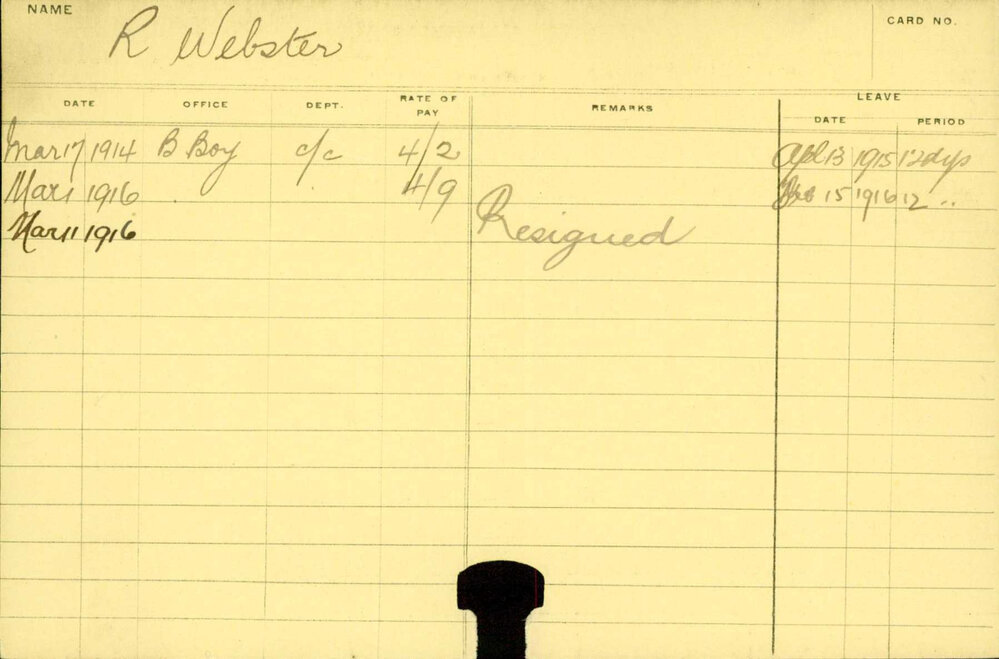 NAME R Webster CARD NO.
DATE OFFICE DEPT. RATE OF PAY REMARKS LEAVE DATE PERIOD
Mar 17 1914 B Boy c/c 4/2 Apl 13 1915 12 dys
Mar 1 1916 4/9 15 1916 12 ..
Mar 11 1916 Resigned